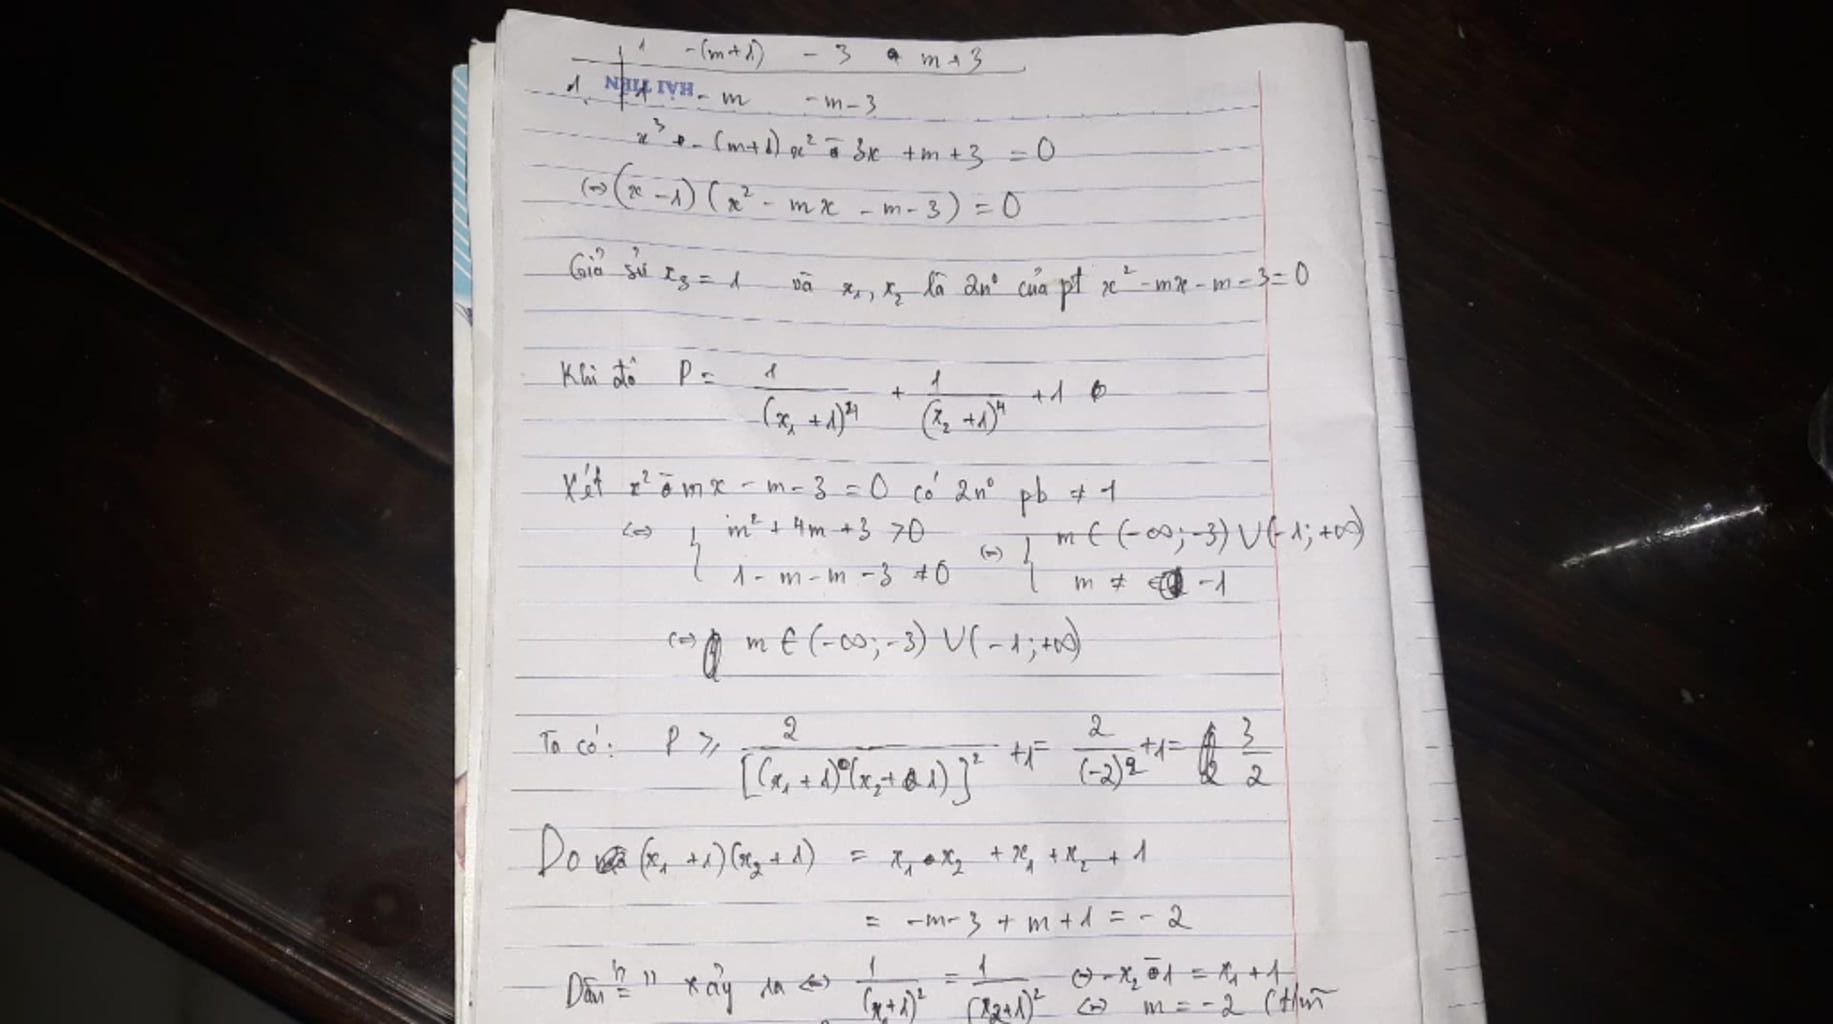 1 -(m+1) - 3 m+3
HẢI TIẾN
1 1 - m -m-3
x³ - (m+1)x² - 3x + m + 3 = 0
⇔ (x-1)(x² - mx - m-3) = 0
Giả sử x₃ = 1 và x₁, x₂ là 2n⁰ của pt x² - mx - m - 3 = 0
Khi đó P = 1/(x₁+1)⁴ + 1/(x₂+1)⁴ + 1
Xét x² - mx - m - 3 = 0 có 2n⁰ pb ≠ 1
⇔ { m² + 4m + 3 > 0 ⇔ { m ∈ (-∞;-3) ∪ (-1;+∞)
1 - m - m - 3 ≠ 0 m ≠ -1
⇔ m ∈ (-∞;-3) ∪ (-1;+∞)
Ta có: P ≥ 2/[(x₁+1)(x₂+1)]² + 1 = 2/(-2)² + 1 = 3/2
Do (x₁+1)(x₂+1) = x₁x₂ + x₁ + x₂ + 1
= -m-3 + m + 1 = -2
Dấu "=" xảy ra ⇔ 1/(x₁+1)² = 1/(x₂+1)² ⇔ -x₂ - 1 = x₁ + 1
⇔ m = -2